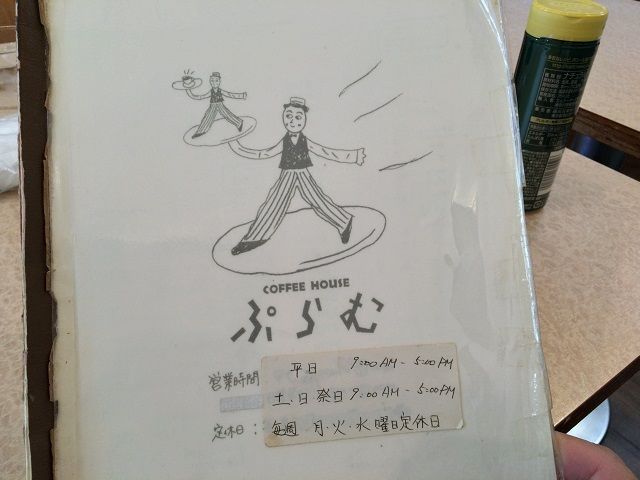 COFFEE HOUSE
ぷらむ
営業時間 平日 9:00 AM - 5:00 PM
土、日 祭日 9:00 AM - 5:00 PM
定休日： 毎週 月・火・水曜日定休日